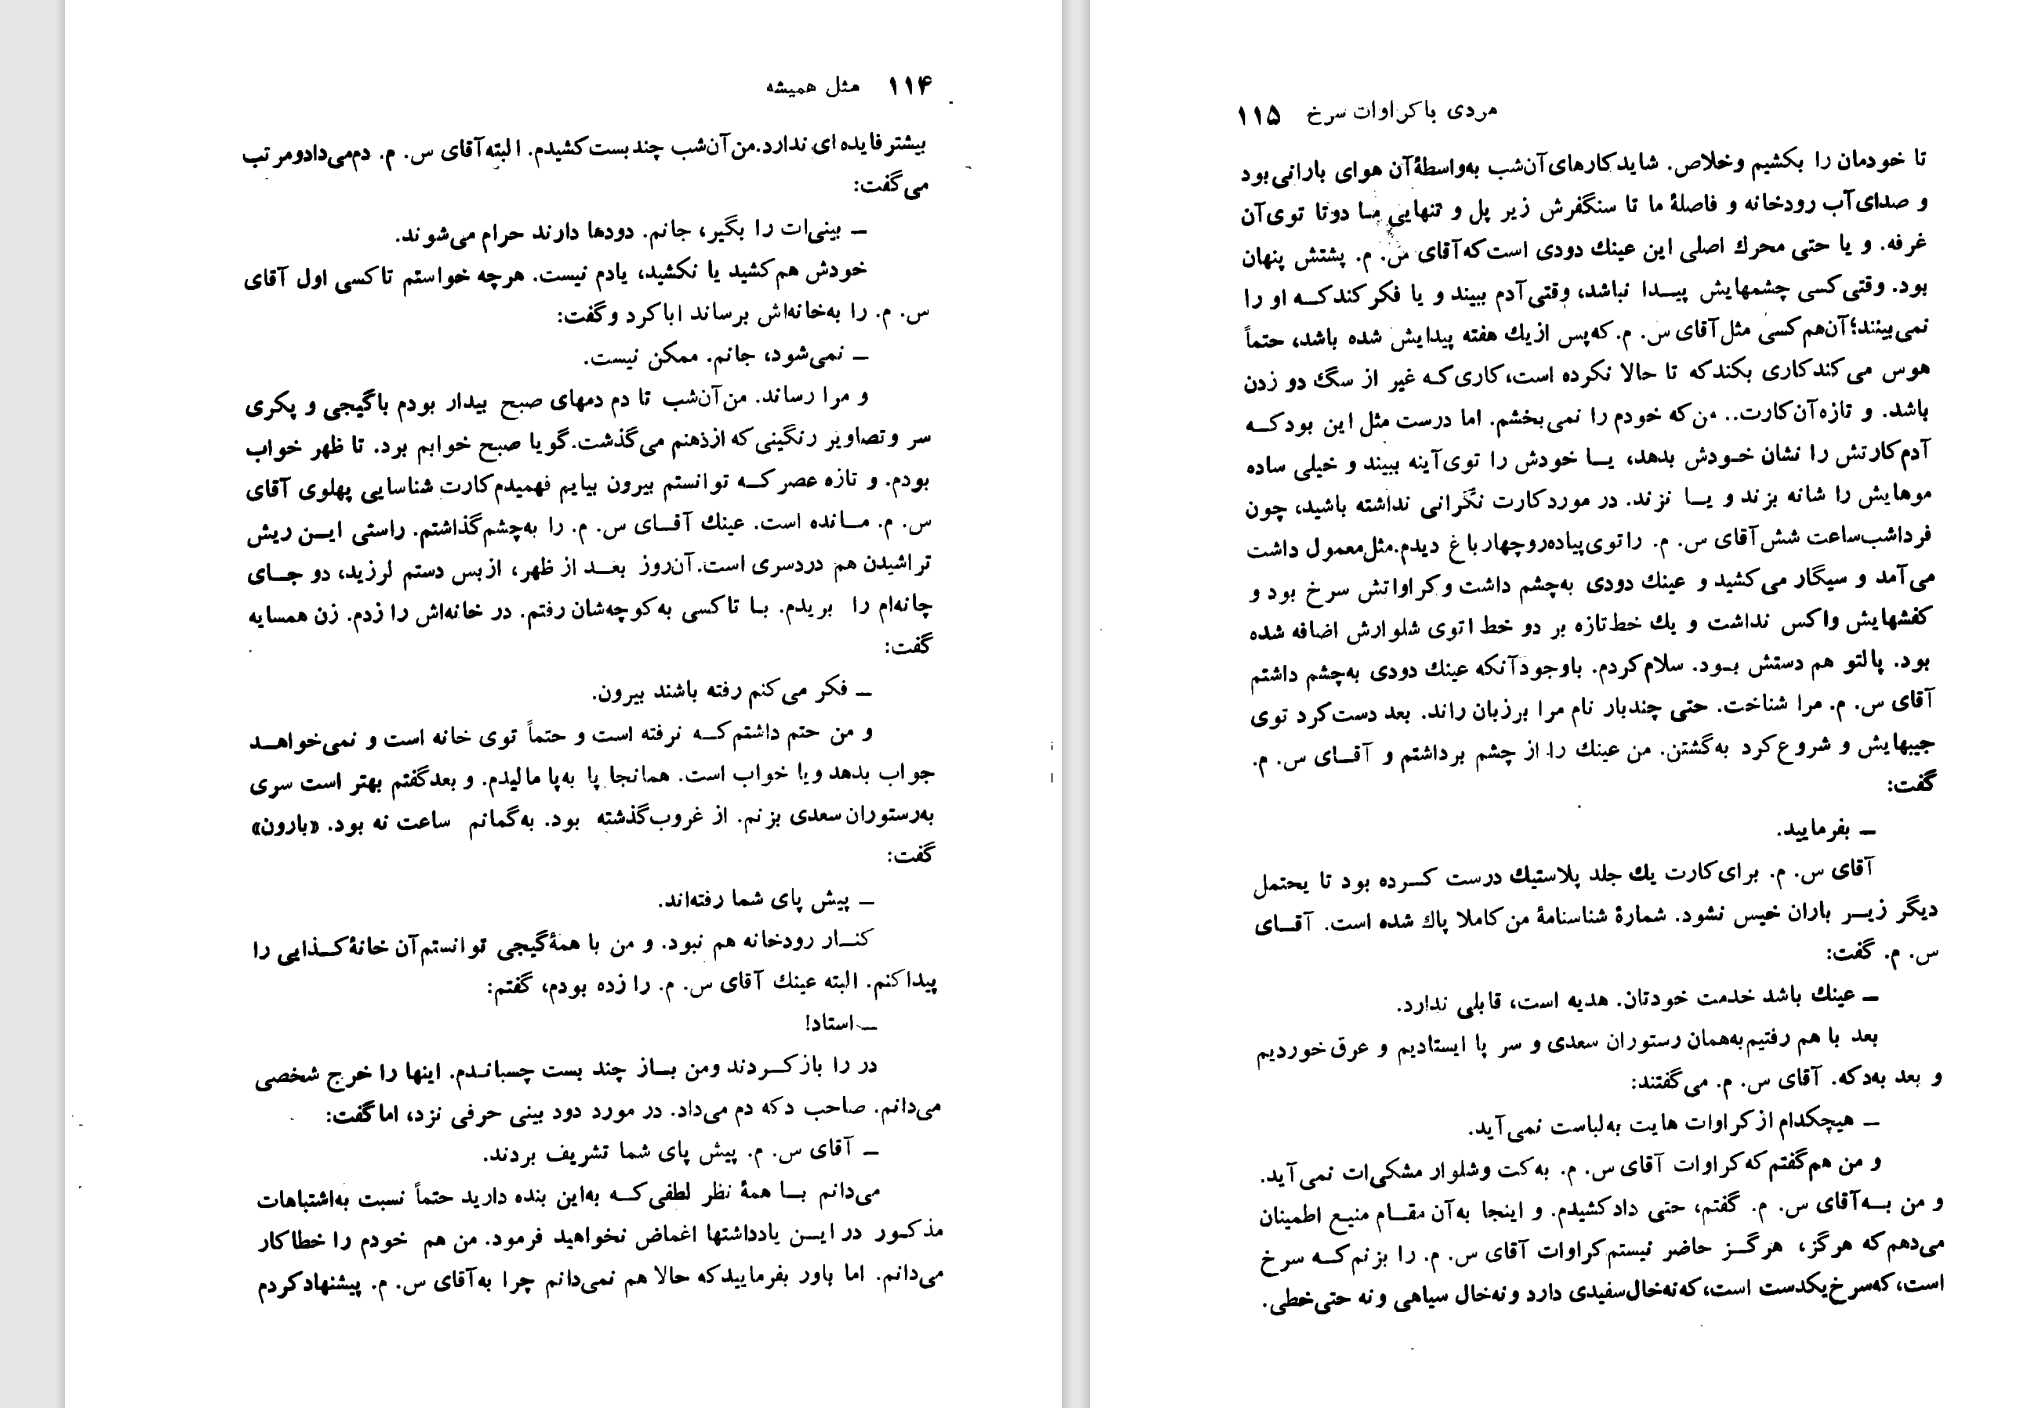 ۱۱۴ مثل همیشه
بیشتر فایده‌ای ندارد. من آن‌شب چند بست کشیدم. البته آقای س. م. دم می‌داد و مرتب
می‌گفت:
ــ بینی‌ات را بگیر، جانم. دودها دارند حرام می‌شوند.
خودش هم کشید یا نکشید، یادم نیست. هرچه خواستم تاکسی اول آقای
س. م. را به‌خانه‌اش برساند ابا کرد و گفت:
ــ نمی‌شود، جانم. ممکن نیست.
و مرا رساند. من آن‌شب تا دم دمهای صبح بیدار بودم با گیجی و پکری
سر و تصاویر رنگینی که از ذهنم می‌گذشت. گویا صبح خوابم برد. تا ظهر خواب
بودم. و تازه عصر کــه توانستم بیرون بیایم فهمیدم کارت شناسایی پهلوی آقای
س. م. مــانده است. عینك آقــای س. م. را به‌چشم گذاشتم. راستی ایــن ریش
تراشیدن هم دردسری است. آن‌روز بعــد از ظهر، از بس دستم لرزید، دو جــای
چانه‌ام را بریدم. بـا تاکسی به‌کوچه‌شان رفتم. در خانه‌اش را زدم. زن همسایه
گفت:
ــ فکر می‌کنم رفته باشند بیرون.
و من حتم داشتم کــه نرفته است و حتماً توی خانه است و نمی‌خواهــد
جواب بدهد و یا خواب است. همانجا پا به‌پا مالیدم. و بعد گفتم بهتر است سری
به‌رستوران سعدی بزنم. از غروب گذشته بود. به‌گمانم ساعت نه بود. «بارون»
گفت:
ــ پیش پای شما رفته‌اند.
کنــار رودخانه هم نبود. و من با همهٔ گیجی توانستم آن خانهٔ کــذایی را
پیدا کنم. البته عینك آقای س. م. را زده بودم، گفتم:
ــ استاد!
در را باز کــردند و من بــاز چند بست چسبانـدم. اینها را خرج شخصی
می‌دانم. صاحب دکه دم می‌داد. در مورد دود بینی حرفی نزد، اما گفت:
ــ آقای س. م. پیش پای شما تشریف بردند.
می‌دانم بــا همهٔ نظر لطفی کــه به‌این بنده دارید حتماً نسبت به‌اشتباهات
مذکـور در ایــن یادداشتها اغماض نخواهید فرمود. من هم خودم را خطاکار
می‌دانم. اما باور بفرمایید که حالا هم نمی‌دانم چرا به آقای س. م. پیشنهاد کردم
مردی با کراوات سرخ ۱۱۵
تا خودمان را بکشیم و خلاص. شاید کارهای آن‌شب به‌واسطهٔ آن هوای بارانی بود
و صدای آب رودخانه و فاصلهٔ ما تا سنگفرش زیر پل و تنهایی مـا دوتا توی آن
غرفه. و یا حتی محرك اصلی این عینك دودی است که آقای س. م. پشتش پنهان
بود. وقتی کسی چشمهایش پیــدا نباشد، وقتی آدم ببیند و یا فکر کند کــه او را
نمی‌بینند؛ آن‌هم کسی مثل آقای س. م. که پس از یك هفته پیدایش شده باشد، حتماً
هوس می‌کند کاری بکند که تا حالا نکرده است، کاری کـه غیر از سگ دو زدن
باشد. و تازه آن کارت.. من که خودم را نمی‌بخشم. اما درست مثل این بود کــه
آدم کارتش را نشان خـودش بدهد، یــا خودش را توی آینه ببیند و خیلی ساده
موهایش را شانه بزند و یــا نزند. در مورد کارت نگرانی نداشته باشید، چون
فرداشب ساعت شش آقای س. م. را توی پیاده‌رو چهارباغ دیدم. مثل معمول داشت
می‌آمد و سیگار می‌کشید و عینك دودی به‌چشم داشت و کراواتش سرخ بود و
کفشهایش واکس نداشت و یك خط تازه بر دو خط اتوی شلوارش اضافه شده
بود. پالتو هم دستش بـود. سلام کردم. با وجود آنکه عینك دودی به‌چشم داشتم
آقای س. م. مرا شناخت. حتی چندبار نام مرا بر زبان راند. بعد دست کرد توی
جیبهایش و شروع کرد به‌گشتن. من عینك را از چشم برداشتم و آقــای س. م.
گفت:
ــ بفرمایید.
آقای س. م. برای کارت یك جلد پلاستیك درست کــرده بود تا یحتمل
دیگر زیــر باران خیس نشود. شمارهٔ شناسنامهٔ من کاملا پاك شده است. آقــای
س. م. گفت:
ــ عینك باشد خدمت خودتان. هدیه است، قابلی ندارد.
بعد با هم رفتیم به‌همان رستوران سعدی و سر پا ایستادیم و عرق خوردیم
و بعد به‌دکه. آقای س. م. می‌گفتند:
ــ هیچکدام از کراوات هایت به‌لباست نمی‌آید.
و من هم گفتم که کراوات آقای س. م. به‌کت و شلوار مشکی‌ات نمی‌آید.
و من بــه آقای س. م. گفتم، حتی داد کشیدم. و اینجا به‌آن مقــام منیـع اطمینان
می‌دهم که هرگز، هرگــز حاضر نیستم کراوات آقای س. م. را بزنم کــه سرخ
است، که سرخ یکدست است، که نه خال سفیدی دارد و نه خال سیاهی و نه حتی خطی.